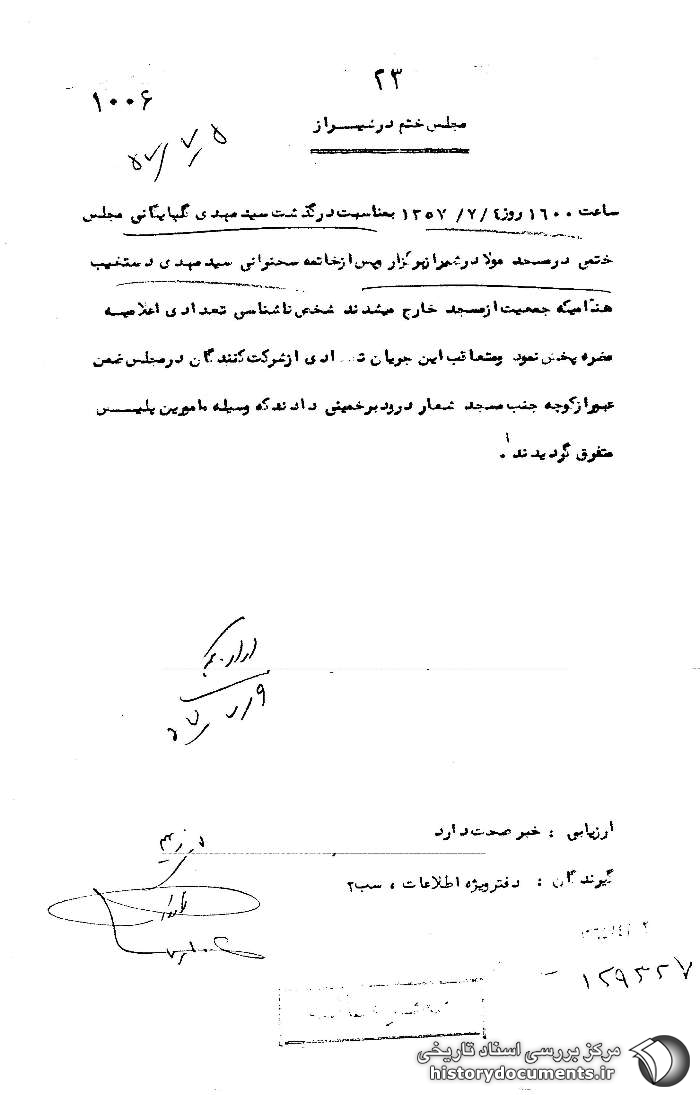 ۲۳
۱۰۰۶
مجلس ختم در شیراز
۵۷/۷/۵
ساعت ۱۶۰۰ روز ۱۳۵۷/۷/٤ بمناسبت درگذشت سید مهدی گلپایگانی مجلس
ختمی در مسجد مولا در شیراز برگزار و پس از خاتمه سخنرانی سید مهدی دستغیب
هنگامیکه جمعیت از مسجد خارج میشدند شخص ناشناسی تعدادی اعلامیه
مضره پخش نمود و متعاقب این جریان تعدادی از شرکت کنندگان در مجلس ضمن
عبور از کوچه جنب مسجد شعار درود بر خمینی دادند که وسیله مامورین پلیس
متفرق گردیدند.
۵۷/۷/۹
ارزیابی : خبر صحت دارد
گیرندگان : دفتر ویژه اطلاعات ، سب ۲
مرکز بررسی اسناد تاریخی
historydocuments.ir